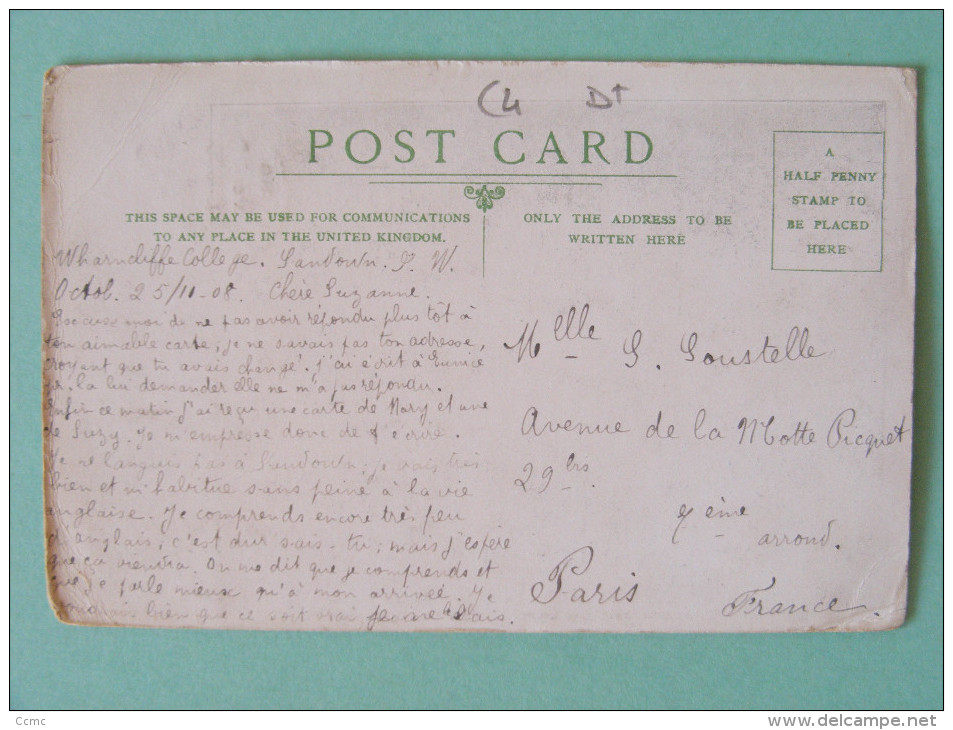 C4 Dt
POST CARD
THIS SPACE MAY BE USED FOR COMMUNICATIONS
TO ANY PLACE IN THE UNITED KINGDOM.
ONLY THE ADDRESS TO BE
WRITTEN HERE
A
HALF PENNY
STAMP TO
BE PLACED
HERE
Wharncliffe College. Sandown. I. W.
Octob. 25/11-08. Chère Suzanne.
Excuse moi de ne pas avoir répondu plus tôt à
ton aimable carte, je ne savais pas ton adresse,
croyant que tu avais changé. J'ai écrit à Eunice
pr. la lui demander elle ne m'a pas répondu.
Enfin ce matin j'ai reçu une carte de Mary et une
de Suzy. Je m'empresse donc de t'écrire.
Je ne languis pas à Sandown; je vais très
bien et m'habitue sans peine à la vie
anglaise. Je comprends encore très peu
d'anglais; c'est dur sais-tu; mais j'espère
que ça viendra. On me dit que je comprends et
que je parle mieux qu'à mon arrivée. Je
voudrais bien que ce soit vrai
Melle S. Soustelle
Avenue de la Motte Picquet
29 bis.
7ème
arrond.
Paris
France.
Ccmc
www.delcampe.net